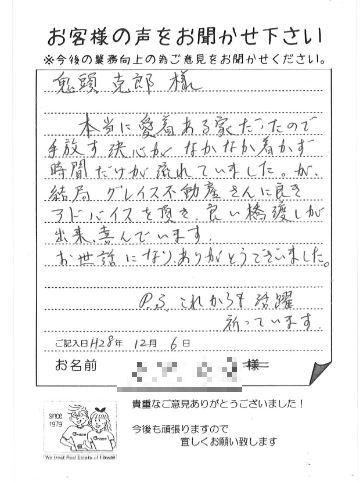 お客様の声をお聞かせ下さい
※今後の業務向上の為ご意見をお聞かせください。
鬼頭 克郎 様
本当に愛着ある家だったので
手放す決心がなかなか着かず
時間だけが流れていました。が、
結局 グレイス不動産さんに良き
アドバイスを頂き、良い橋渡しが
出来、喜んでいます。
お世話になり、ありがとうございました。
P.S これからも活躍
祈っています。
ご記入日 H28年 12月 6日
お名前 様
SINCE
1979
貴重なご意見ありがとうございました！
今後も頑張りますので
宜しくお願い致します